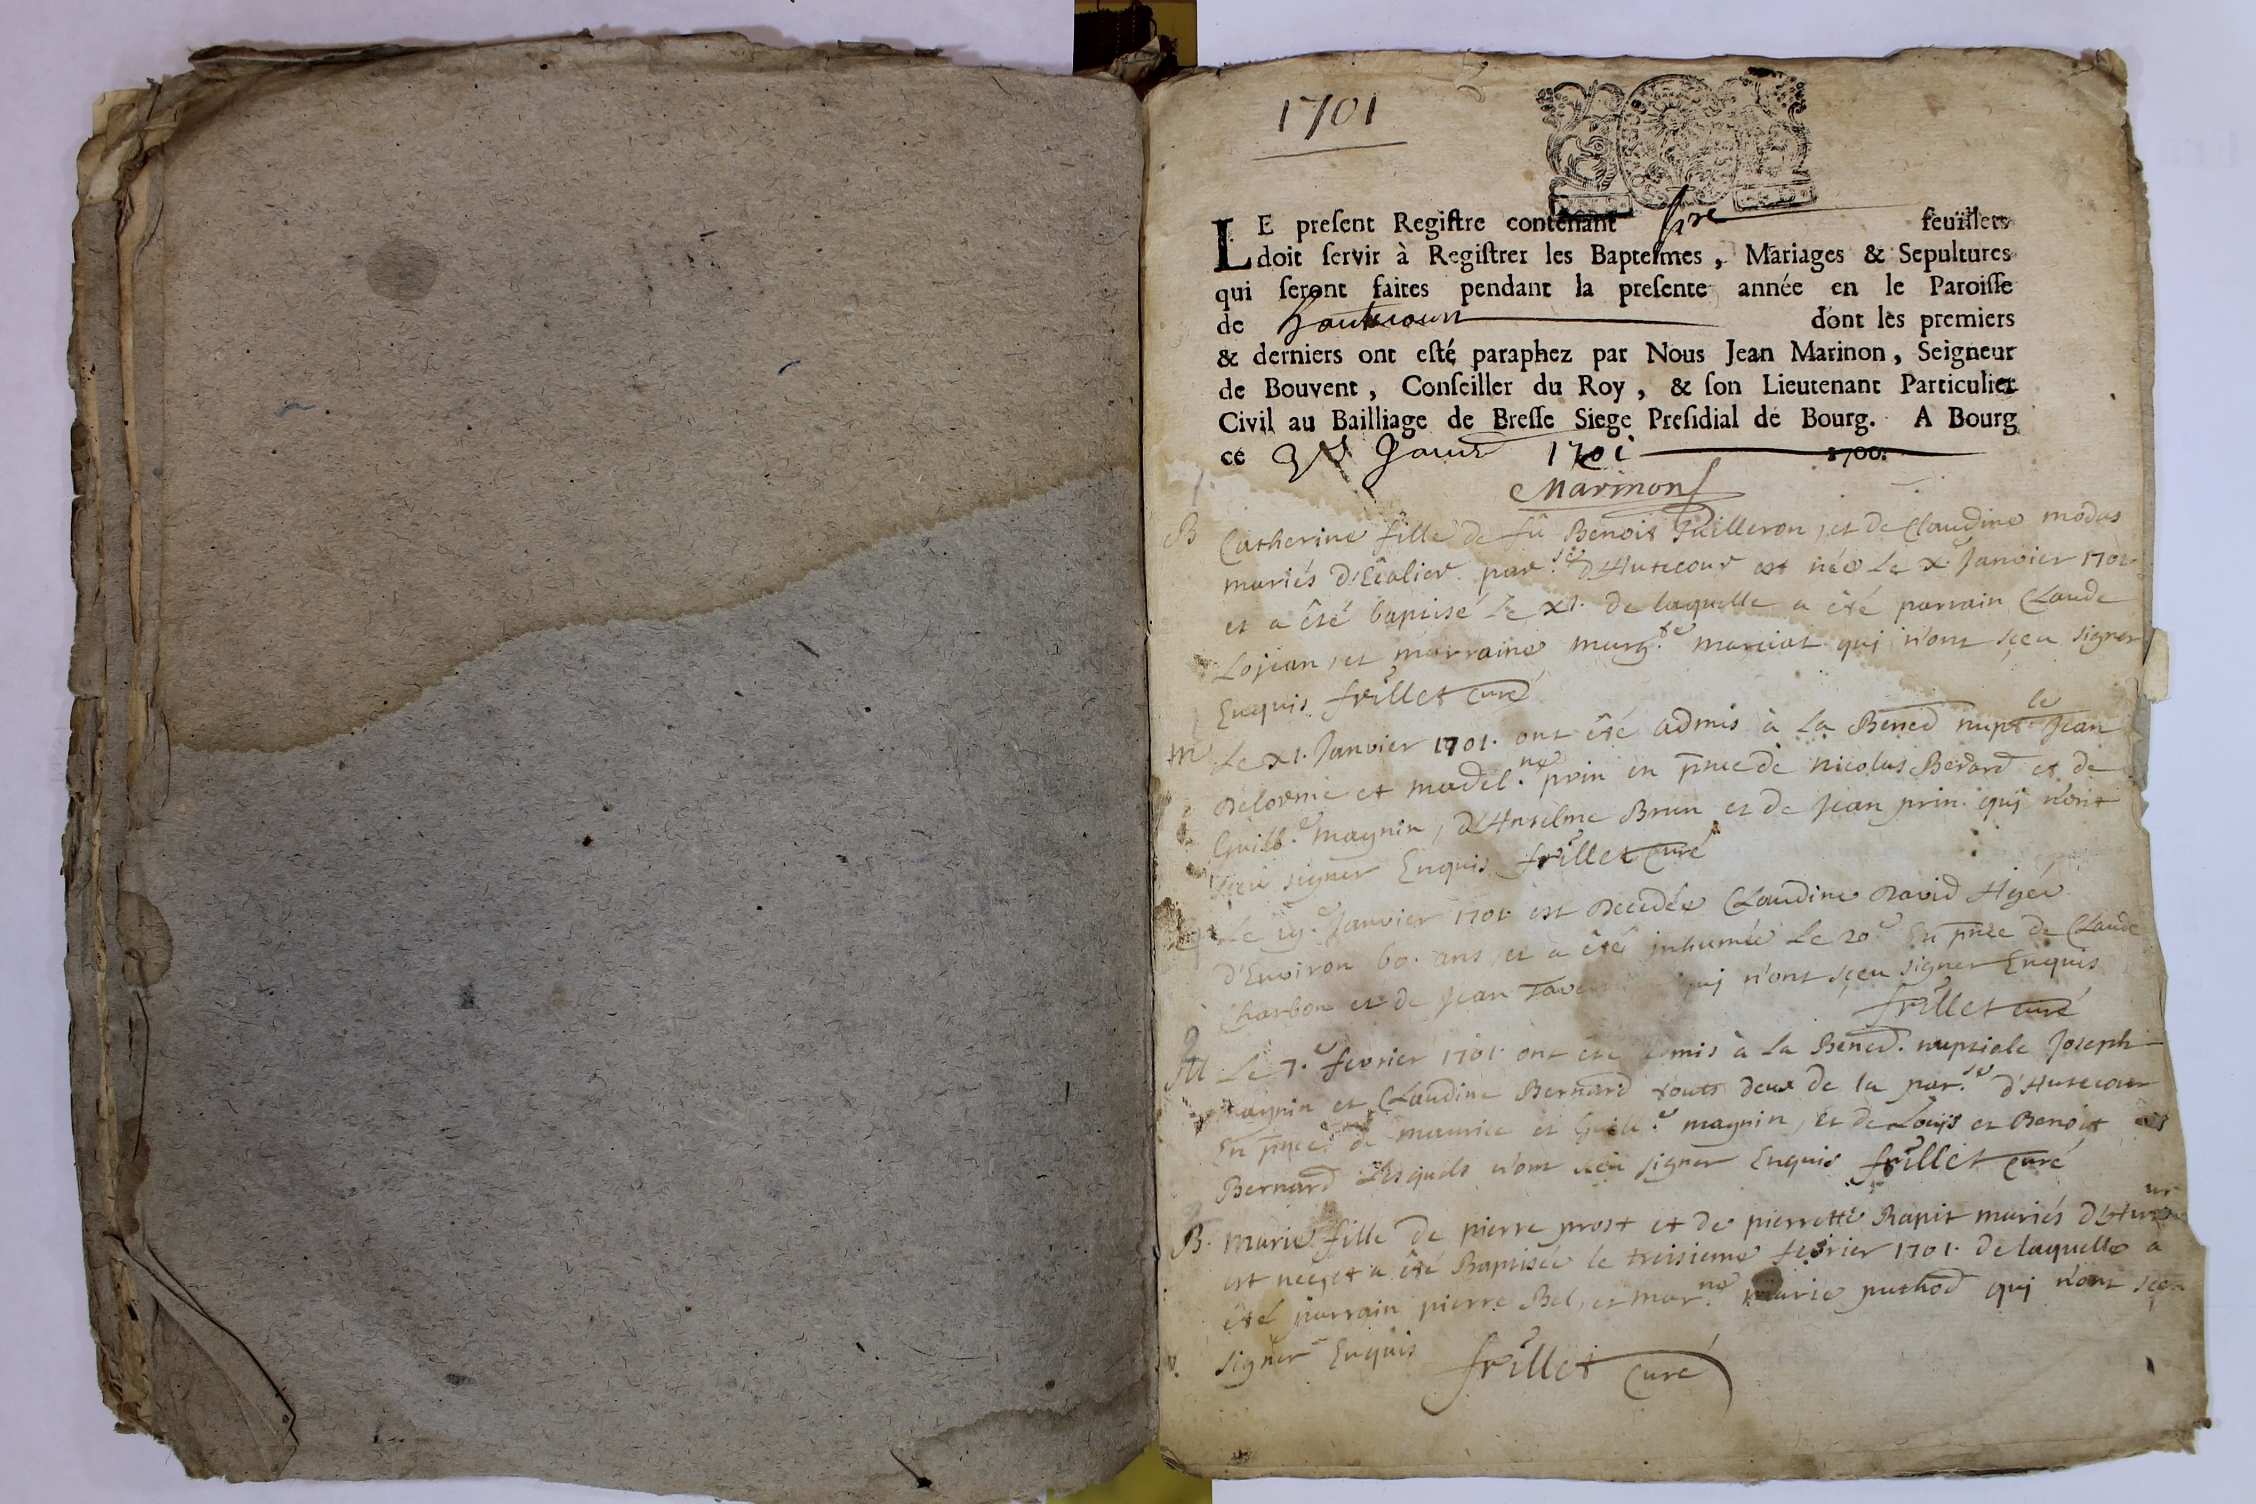 1701
LE preſent Regiſtre contenant feuillets
doit ſervir à Regiſtrer les Bapteſmes, Mariages & Sepultures
qui ſeront faites pendant la preſente année en le Paroiſſe
de hautecourt dont les premiers
& derniers ont eſté paraphez par Nous Jean Marinon, Seigneur
de Bouvent, Conſeiller du Roy, & ſon Lieutenant Particulier
Civil au Bailliage de Breſſe Siege Preſidial de Bourg. A Bourg
ce Janvr 1701 1700.
Marinon
B Catherine fille de fû Benoit Guilleron, et de Claudine modas
mariés d'Eialier par.se d'Hutecour est née Le x Janvier 1701
et a êté baptisé Le x1. de laquelle a êté parrain Claude
Lojean, et marraine marg.te marciat qui n'ont sçeu signer
Enquis frillet curé
M Le x1. Janvier 1701. ont êté admis à La Bened nupt.le Jean
Delorme et madel.ne prin en pnce de nicolas Berard et de
Guill.e magnin, d'Anselme Brun et de Jean prin qui n'ont
sçeu signer Enquis frillet curé
Le 19.e Janvier 1701 est Decedée Claudine David Agée
d'Environ 60. ans, et a êté inhumée Le 20e En pnce de Claude
Charbon et de Jean qui n'ont sçeu signer Enquis
frillet curé
M Le 7.e fevrier 1701. ont êté admis à La Bened. nuptiale Joseph
magnin et Claudine Bernard touts deux de la par.se d'Hutecour
En pnce de maurice et Guill.e magnin, et de Louis et Benoit
Bernard Lesquels n'ont sçeu signer Enquis frillet curé
B. marie fille de pierre prost et de pierrette Rapit mariés d'Hutecour
est neé, et a êté Baptisée le troisieme fevrier 1701. de laquelle a
êté parrain pierre Bel, et mar.ne marie puthod qui n'ont sçeu
signer Enquis frillet curé